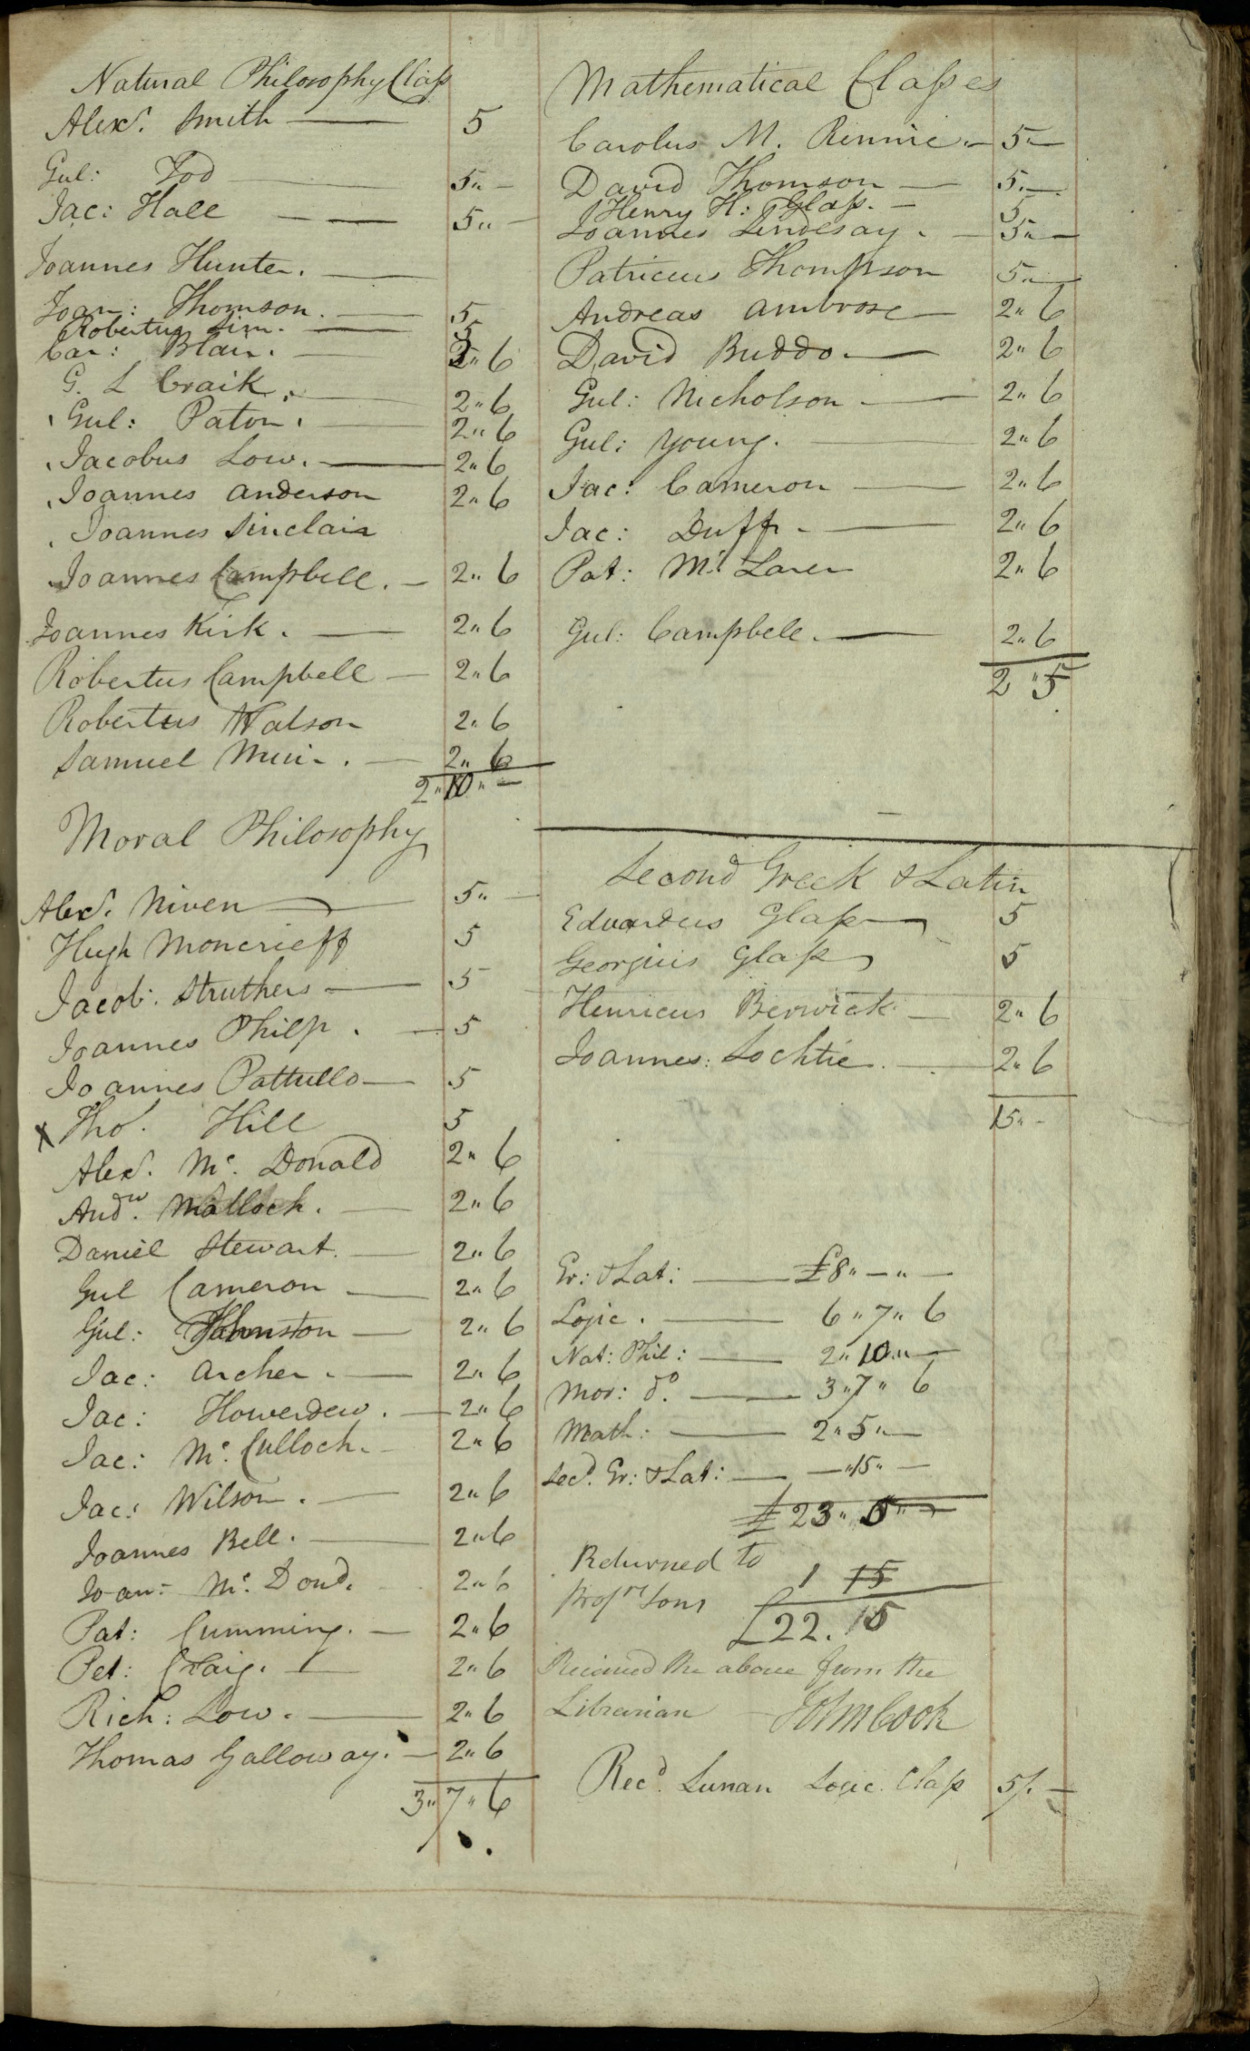 Natural Philosophy Class
Alexr. Smith — 5
Gul: Tod — 5"-
Jac: Hall — 5"-
Joannes Hunter. —
Joan: Thomson. — 5
Robertus Sim. — 5
Car: Blair. — 2"6
G. L Craik. — 2"6
Gul: Paton. — 2"6
Jacobus Low. — 2"6
Joannes Anderson 2"6
Joannes Sinclair
Joannes Campbell. — 2"6
Joannes Kirk. — 2"6
Robertus Campbell — 2"6
Robertus Watson 2"6
Samuel Muir. — 2"6
2"10"-
Moral Philosophy
Alexr. Niven — 5"-
Hugh Moncrieff 5
Jacob: Struthers — 5
Joannes Philp. — 5
Joannes Pattullo — 5
x Tho: Hill 5
Alexr. Mc. Donald 2"6
Andw. Malloch. — 2"6
Daniel Stewart. — 2"6
Gul Cameron — 2"6
Gul: Johnston — 2"6
Jac: Archer. — 2"6
Jac: Howerdew. — 2"6
Jac: Mc. Culloch. — 2"6
Jac: Wilson. — 2"6
Joannes Bell. — 2"6
Joan: Mc. Dond. 2"6
Pat: Cumming. — 2"6
Pet: Craig. — 2"6
Rich: Low. — 2"6
Thomas Galloway. — 2"6
3"7"6
Mathematical Classes
Carolus M. Rennie. — 5"-
David Thomson — 5"-
Henry H: Glass. — 5
Joannes Lindesay. — 5"-
Patricius Thompson 5"-
Andreas Ambrose — 2"6
David Buddo. — 2"6
Gul: Nicholson — 2"6
Gul: Young. — 2"6
Jac: Cameron — 2"6
Jac: Duff. — 2"6
Pat: Mc. Laren 2"6
Gul: Campbell. — 2"6
2"5
Second Greek & Latin
Eduardus Glass 5
Georgius Glass 5
Henricus Berwick — 2"6
Joannes: Lochtie. — 2"6
15"-
Gr: & Lat: — £8"-"-
Logic. — 6"7"6
Nat: Phil: — 2"10"-
Mor: do. — 3"7"6
Math: — 2"5"-
Secd. Gr: & Lat: — -"15"-
£23"5"-
Returned to
Profrs Sons 1 15
£22.15
Received the above from the
Librarian John Cook
Recd. Lunan Logic Class 5/. —